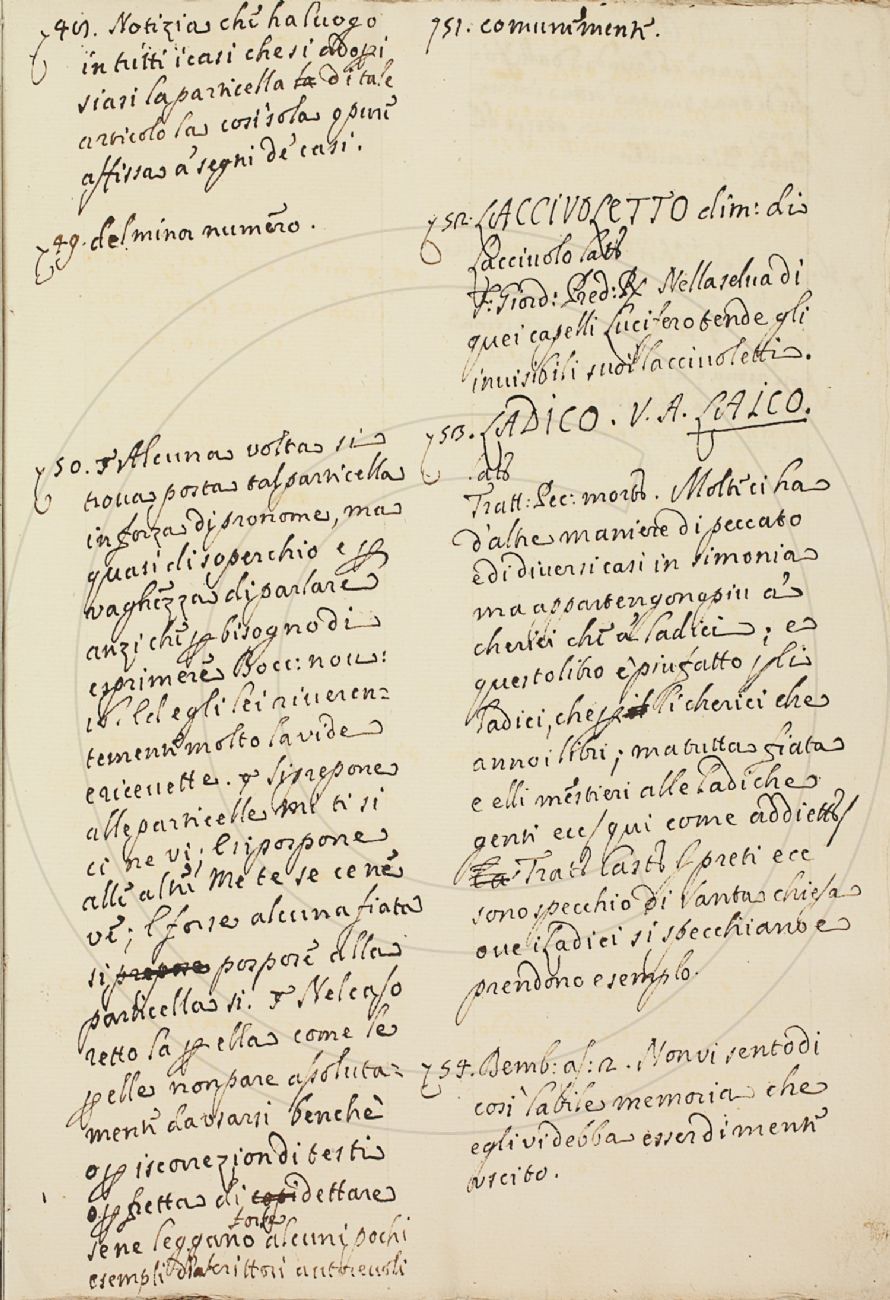 748. Notizia che ha luogo
in tutti i casi che si adopri
siasi la particella la di tale
articolo la così sola o pure
affissa a' segni de' casi.
749. del minor numero.
750. Alcuna volta si
trova posta tal particella
in forza di pronome, ma
quasi di soperchio e p
vaghezza di parlare
anzi che p bisogno di
esprimere Bocc: nov:
Ed egli lei riveren=
temente molto la vide
e ricevette. Si prepone
alle particelle mi ti si
ci ne vi; e si pospone
alle altre me te se ce ne
ve; e forse alcuna fiata
si prepone pospore alla
particella si. Nel caso
retto la p ella come le
p elle non pare assoluta=
mente da usarsi benchè
o p iscorrezion di testi
o p fretta di dettare
forse
se ne leggano alcuni pochi
esempli di scrittori autorevoli
751. comunemente.
752. LACCIVOLETTO dim: di
Lacciuolo lat
F: Giord: Pred: R Nella selva di
quei capelli Lucifero tende gli
invisibili suoi lacciuoletti.
753. LADICO. V. A. LAICO.
lat
Tratt: Pec: mort. Molte ci ha
d'altre maniere di peccato
e di diversi casi in simonia
ma appartengono piu a'
cherici che a' ladici; e
questo libro è piu fatto p li
ladici, che p li cherici che
anno i libri; ma tutta fiata
e elli mestieri alle ladiche
genti ecc/ qui come addiett/
La Tratt Cast preti ecc
sono specchio di santa chiesa
ove i Ladici si specchiano e
prendono esemplo.
754. Bemb: as: 2. Non vi sento di
così labile memoria che
egli vi debba esser di mente
uscito.